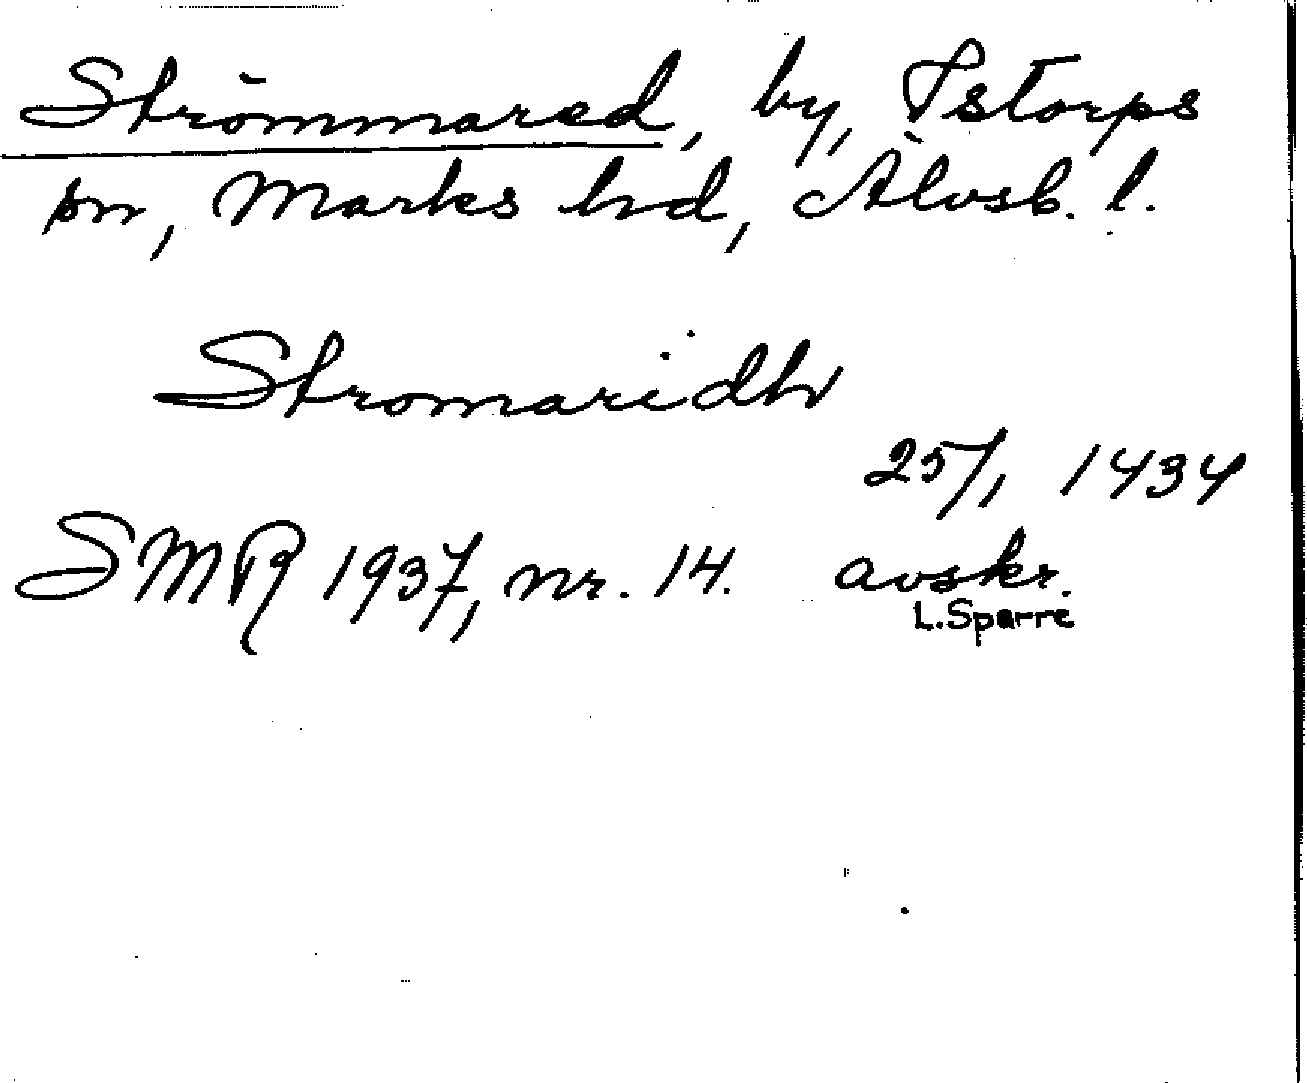 Strömmared, by, Istorps
sn, Marks hd, Älvsb. l.
Stromaridh
25/1 1434
SMR 1937, nr. 14. avskr.
L. Sparre